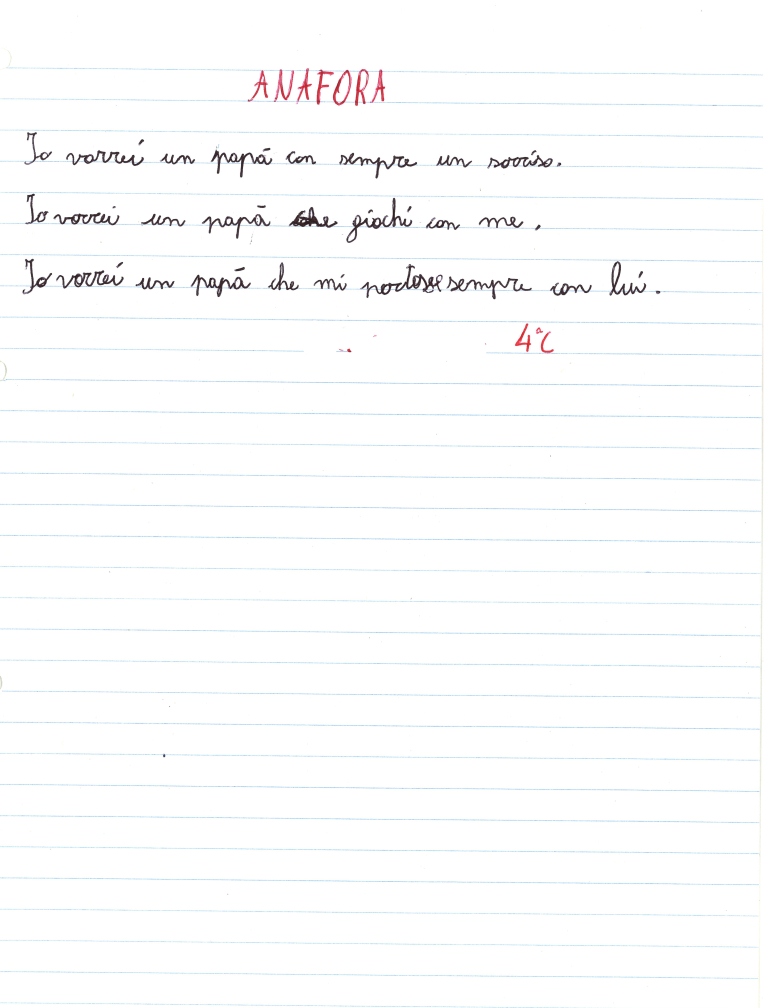 ANAFORA
Io vorrei un papā con sempre un sorriso.
Io vorrei un papā che giochi con me.
Io vorrei un papā che mi portasse sempre con lui.
4ªC